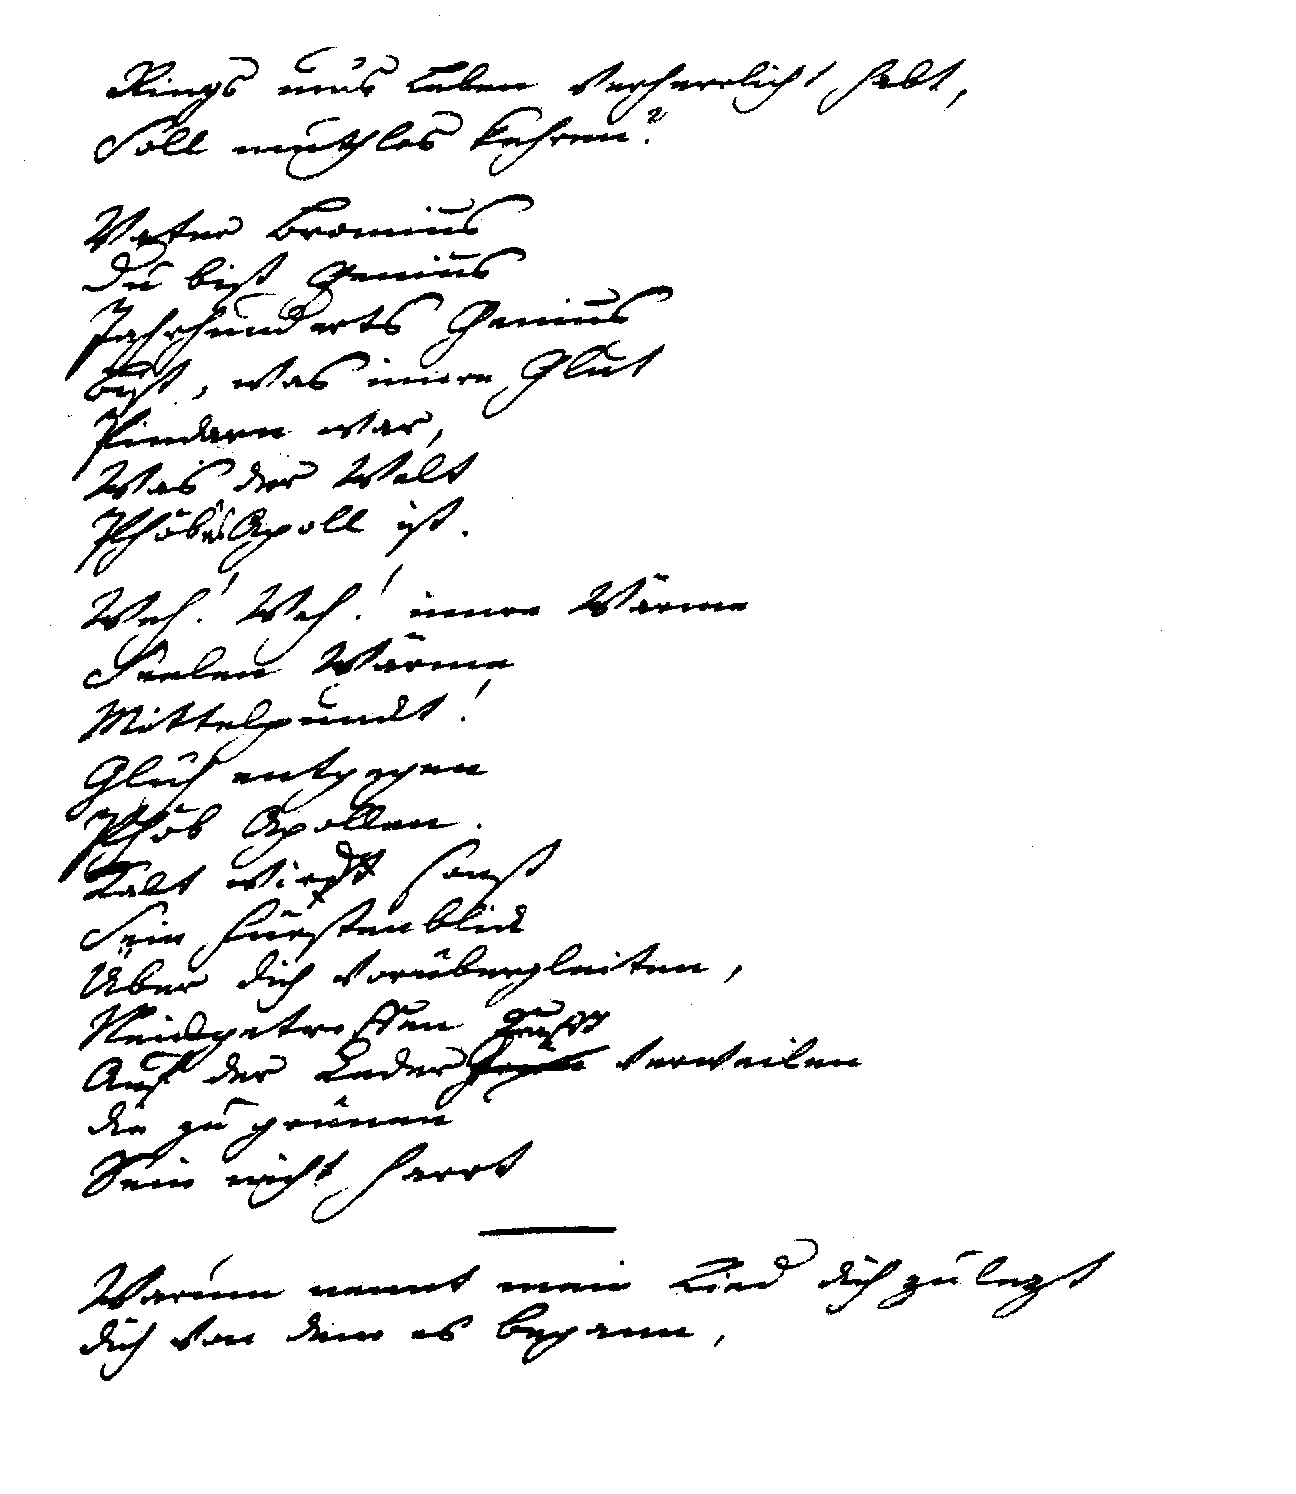 Rings ums Leben verherrlicht habt,
Soll muthlos kehren?
Vater Bromius
Du bist Genius
Jahrhunderts Genius
Bist, was innre Glut
Pindarn war,
Was der Welt
Phöbus Apoll ist.
Weh! Weh! innre Wärme
Seelen Wärme
Mittelpunckt!
Glüh entgegen
Phöb Apollen.
Kalt wird sonst
Sein Fürstenblick
Über dich vorübergleiten,
Neidgetroffen
Auf der Ceder verweilen
die zu grünen
Sein nicht harrt
Warum nennt mein Lied dich zulezt
dich von dem es begann,